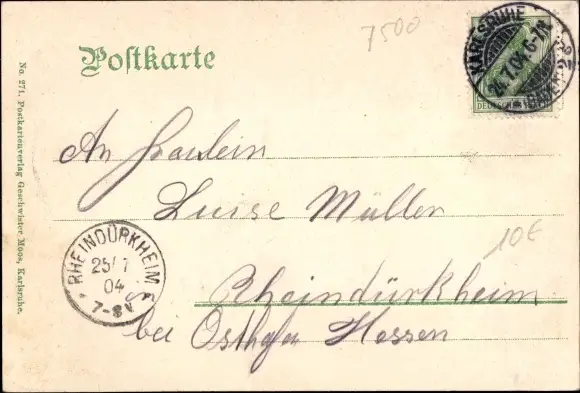 7500
Postkarte
KARLSRUHE
24.7.04.6-7N.
DEUTSCHES
No. 271. Postkartenverlag Geschwister Moos, Karlsruhe.
An Fräulein
Luise Müller
10€
RHEINDÜRKHEIM
25/7
04
7-8V
Rheindürkheim
bei Osthofen Hessen